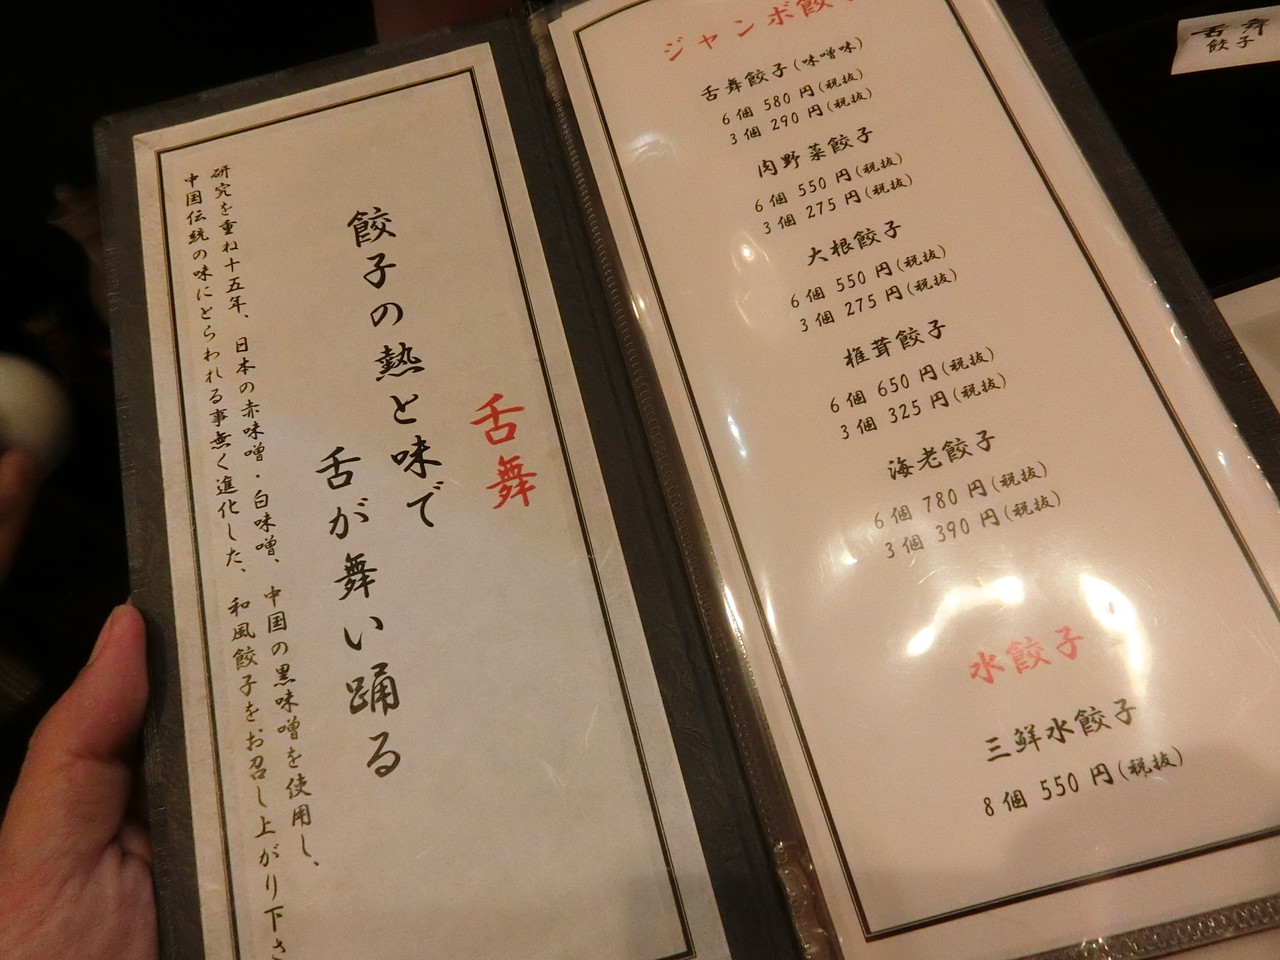 舌舞
餃子の熱と味で
舌が舞い踊る
研究を重ね十五年、日本の赤味噌・白味噌、中国の黒味噌を使用し、
中国伝統の味にとらわれる事無く進化した、和風餃子をお召し上がり下さ
ジャンボ餃子
舌舞餃子(味噌味)
6個 580円(税抜)
3個 290円(税抜)
肉野菜餃子
6個 550円(税抜)
3個 275円(税抜)
大根餃子
6個 550円(税抜)
3個 275円(税抜)
椎茸餃子
6個 650円(税抜)
3個 325円(税抜)
海老餃子
6個 780円(税抜)
3個 390円(税抜)
水餃子
三鮮水餃子
8個 550円(税抜)
舌舞
餃子